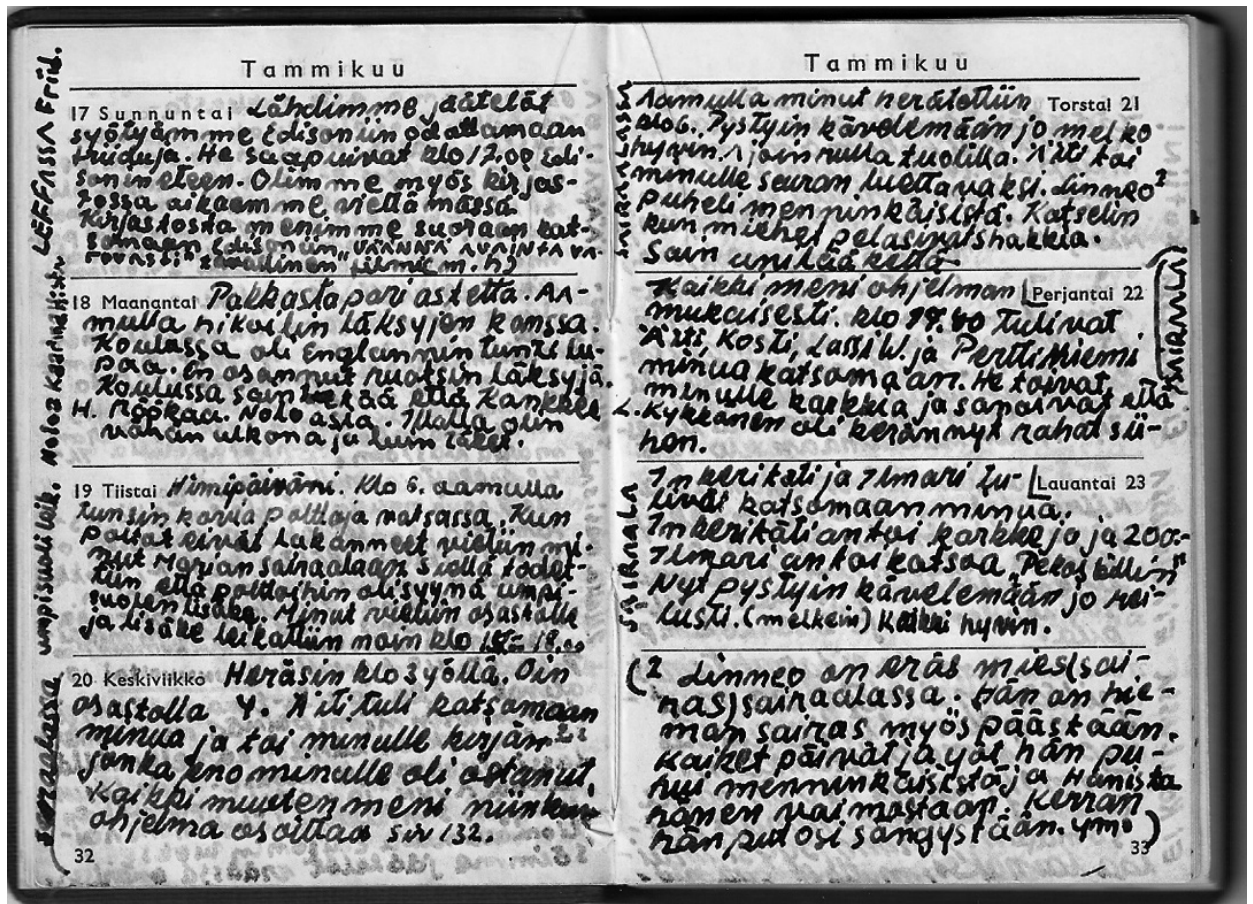 Tammikuu
17 Sunnuntai Lähdimme jäätelöt
syötyämme Edisoniin odottamaan
friiduja. He saapuivat klo 17.00 Edi-
sonin eteen. Olimme myös kirjas-
tossa aikaamme viettämässä
Kirjastosta menimme suoraan kat-
somaan Edisoniin "VÄÄNNÄ AVAINTA VA-
ROVASTI" tavallinen filmi (m. h)
LEFFASSA Friid.
18 Maanantai Pakkasta pari astetta. AA-
mulla hikoilin läksyjen kanssa.
Koulussa oli Englannin tunti lu-
paa. En osannut ruotsin läksyjä.
Koulussa sain kekää että Kankkel
H. Röökaa. Noloa asia. Illalla olin
vähän ulkona ja luin läket.
Noloa Kaarinalista
19 Tiistai Nimipäiväni. Klo 6. aamulla
tunsin kovia polttoja vatsassa. Kun
poltot eivät lakanneet vietiin mi-
nut Marian sairaalaan siellä todet-
tiin että polttoihin oli syynä umpi-
suolen lisäke. Minut vietiin osastolle
ja lisäke leikattiin noin klo 18.00
umpisuoli leik.
20 Keskiviikko Heräsin klo 3 yöllä. Oin
osastolla 4. Äiti tuli katsomaan
minua ja toi minulle kirjan
jonka eno minulle oli ostanut
Kaikki muuten meni niinkuin
ohjelma osoittaa siv 132.
sairaalassa
32
Tammikuu
Aamulla minut herätettiin Torstai 21
klo 6. Pystyin kävelemään jo melko
hyvin. Ajoin rullatuolilla. Äiti toi
minulle seuran luettavaksi. Linneo²
puheli menninkäisistä. Katselin
kun miehet pelasivat shakkia.
Sain unilääkettä
SAIRAALASSA
Kaikki meni ohjelman Perjantai 22
mukaisesti. klo 17.40 tulivat
Äiti, Kosti, Lassi W. ja Pertti Niemi
minua katsomaan. He toivat
minulle karkkia ja sanoivat että
L. Kykkänen oli kerännyt rahat sii-
hon.
SAIRAALA
Inkeritäti ja Ilmari tu- Lauantai 23
livat katsomaan minua.
Inkeritäti antoi karkkeja ja 200:-
Ilmari antoi katsoa "Pekos Billin"
Nyt pystyin kävelemään jo rei-
lusti. (melkein) Kaikki hyvin.
SAIRAALA
(² Linneo on eräs mies (sai-
ras) sairaalassa. Hän on hie-
man sairas myös päästään.
Kaiket päivät ja yöt hän pu-
hui menninkäisistä ja
hänen vaimostaan. Kerran
hän putosi sängystään. ym. )
33